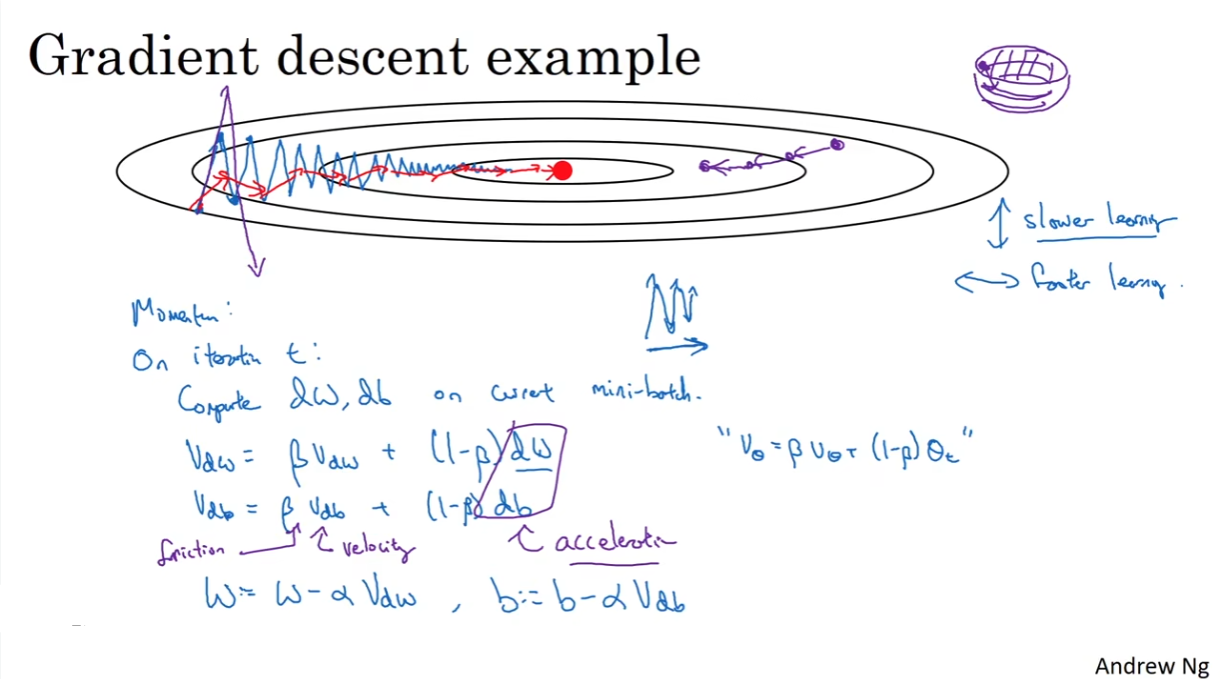 Gradient descent example
slower learning
faster learning.
Momentum:
On iteration t:
Compute dW, db on current mini-batch.
VdW = βVdW + (1-β)dW
"Vθ = βVθ + (1-β)θt"
Vdb = βVdb + (1-β)db
friction velocity acceleration
W := W - αVdW , b := b - αVdb
Andrew Ng